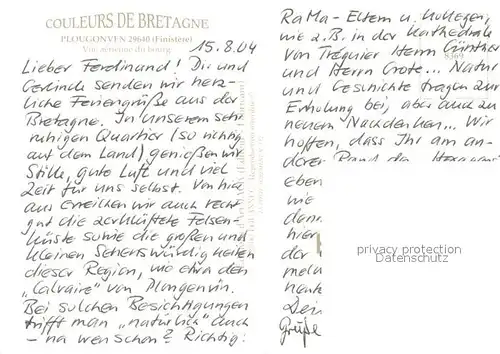 COULEURS DE BRETAGNE
PLOUGONVEN 29640 (Finistère)
Vue aérienne du bourg
15.8.04
Lieber Ferdinand! Dir und
Gerlinde senden wir herz-
liche Feriengrüße aus der
Bretagne. In unserem sehr
ruhigen Quartier (so richtig
auf dem Land) genießen wir
Stille, gute Luft und viel
Zeit für uns selbst. Von hier
aus erreichen wir auch recht
gut die zerklüftete Felsen-
küste sowie die großen und
kleinen Sehenswürdigkeiten
dieser Region, wie etwa den
"Calvaire" von Plougonvin.
Bei solchen Besichtigungen
trifft man "natürlich" auch
- na wen schon? Richtig:
RaMa-Eltern u. Kollegen,
wie z.B. in der Kathedrale
von Tréguier Herrn Günther
und Herrn Grote... Natur
und Geschichte tragen zur
Erholung bei, aber auch zu
neuem Nachdenken... Wir
hoffen, dass Ihr am an-
deren
eben
wie
dann
hier
der
mela
heute
Dein
Grüße
8369
privacy protection
Datenschutz